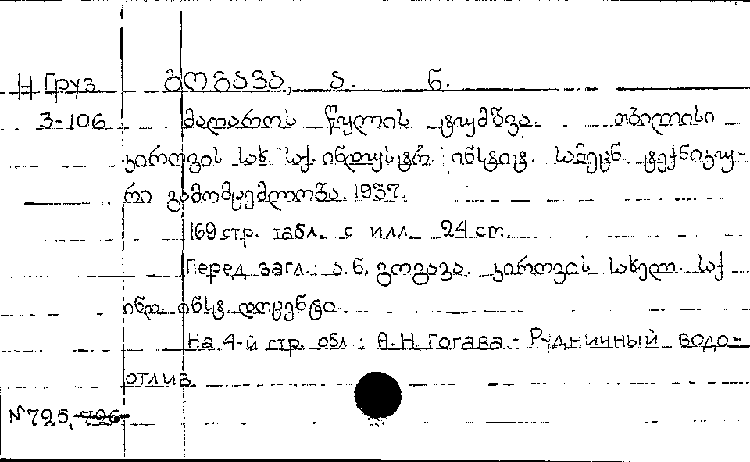 Н Груз გოგავა, ა. ნ.
3-106 მაღაროს წყლის ტუმბვა. თბილისი
კიროვის სახ. საქ. ინდუსტრ. ინსტიტ. სამეცნ. ტექნიკუ-
რი გამომცემლობა. 1937.
169 стр. табл. с илл. 24 cm.
Перед загл.: ა. ნ. გოგავა. კიროვის სახელ. საქ
ინდ. ინსტ. დოცენტი.
На 4-й стр. обл: А.Н. Гогава - Рудничный водо-
отлив
№725,